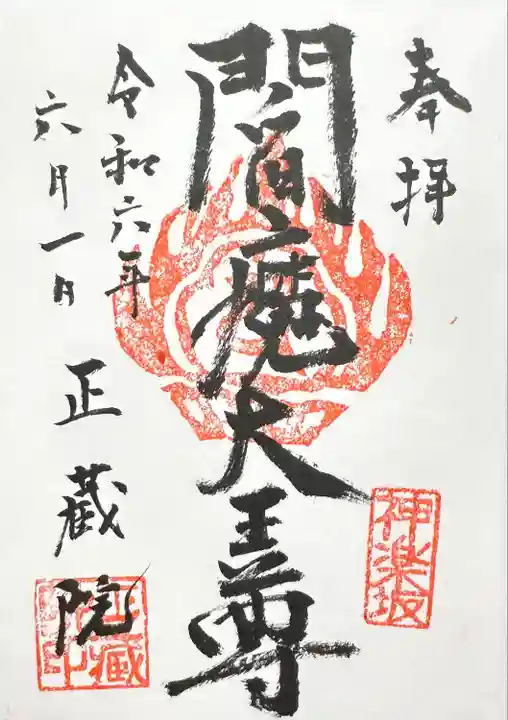 奉拝
閻魔大王尊
令和六年
六月一日
正蔵院
神楽坂